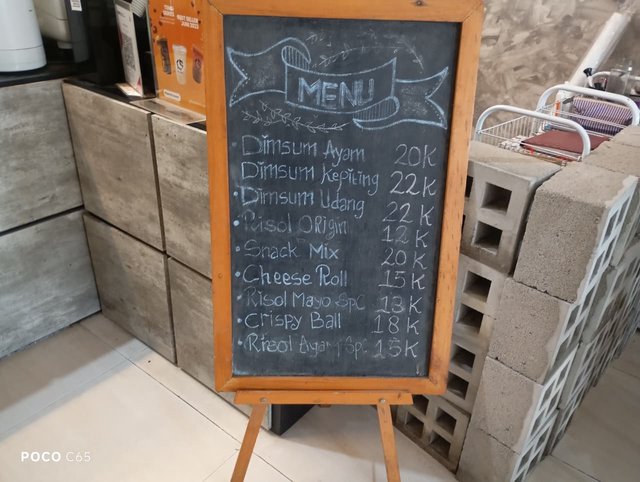 MENU
Dimsum Ayam 20K
Dimsum Kepiting 22K
• Dimsum Udang 22K
• Risol ORigin 12K
• Snack Mix 20K
• Cheese Roll 15K
• Risol Mayo Spc 13K
• Crispy Ball 18K
• Risol Ayam Spc 15K
POCO C65